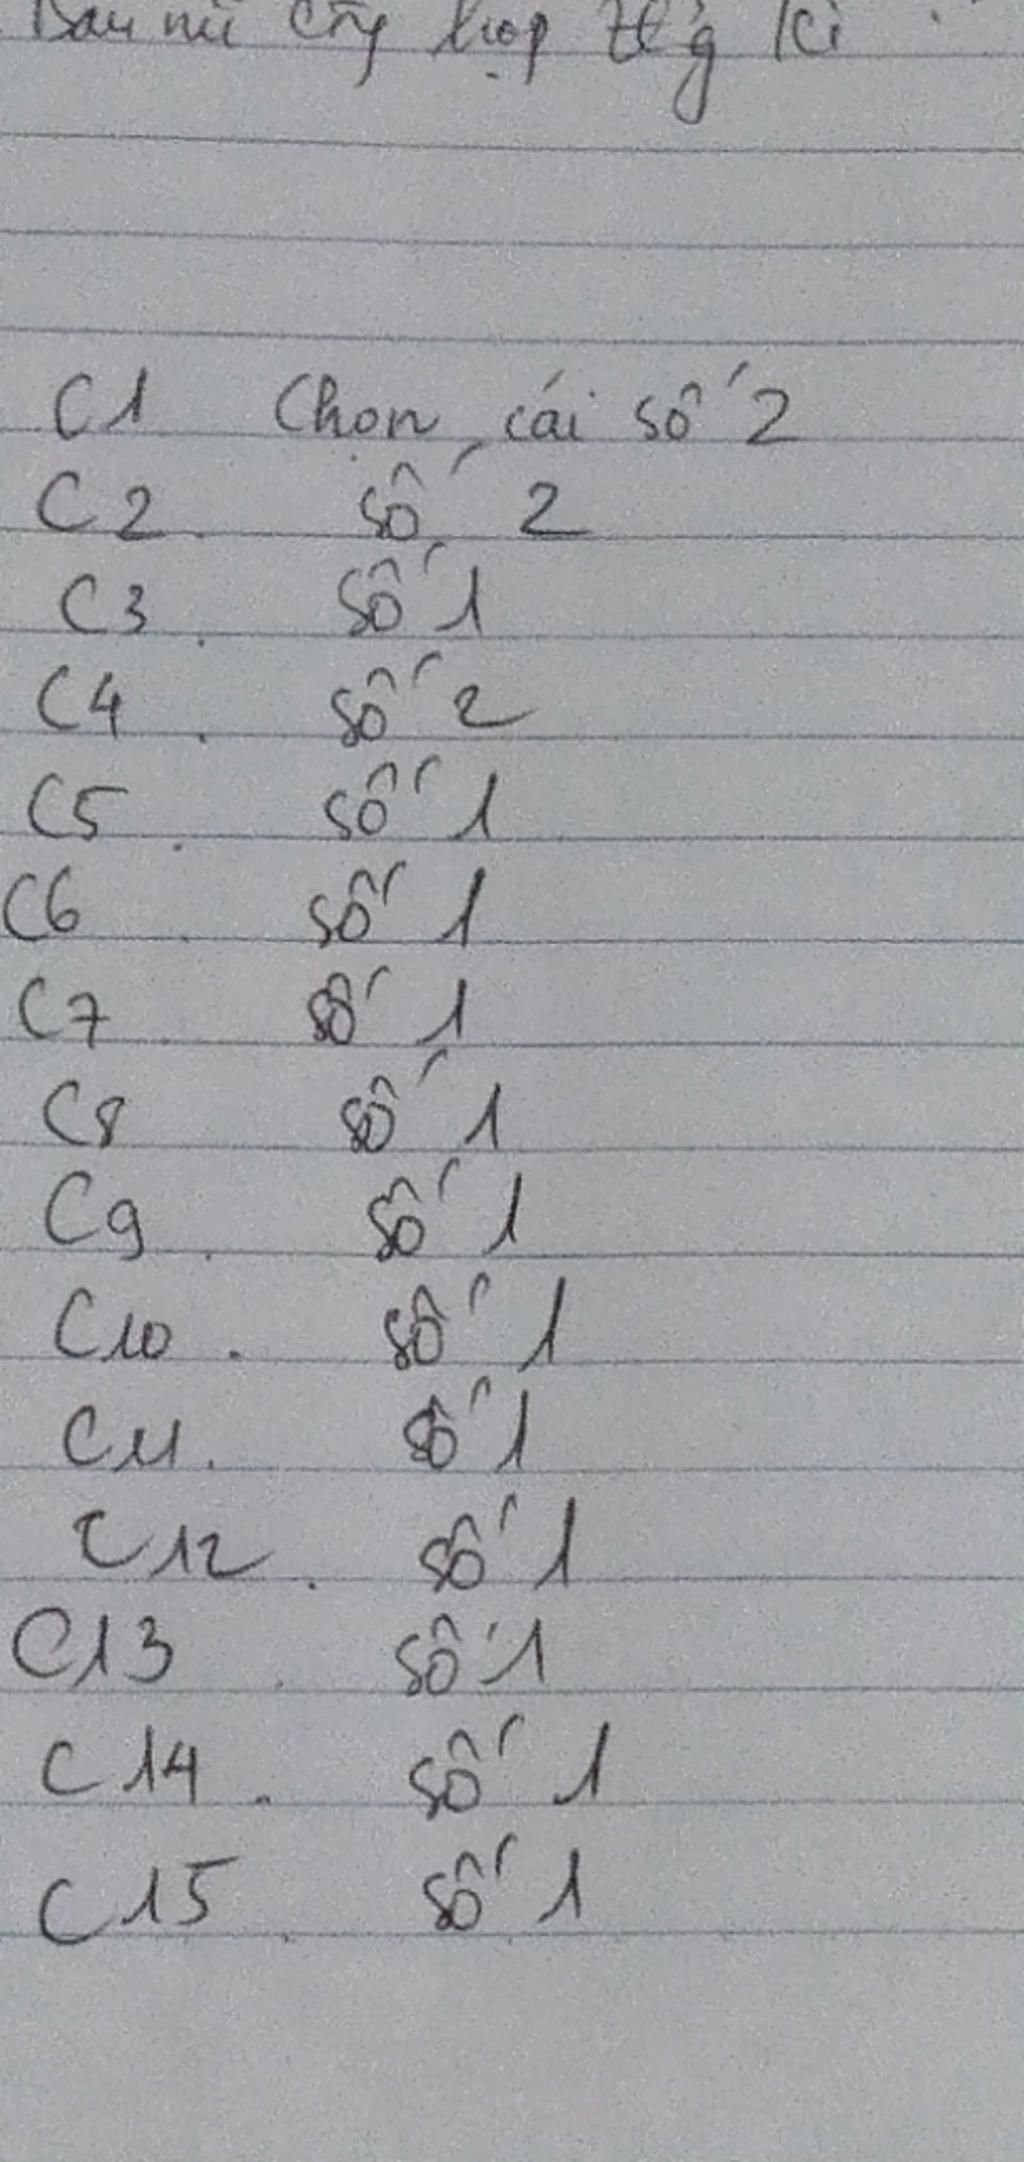 hợp
C1 Chọn cái số 2
C2. số 2
C3. số 1
C4. số 2
C5. số 1
C6. số 1
C7. số 1
C8 số 1
C9. số 1
C10. số 1
C11. số 1
C12. số 1
C13. số 1
C14. số 1
C15. số 1